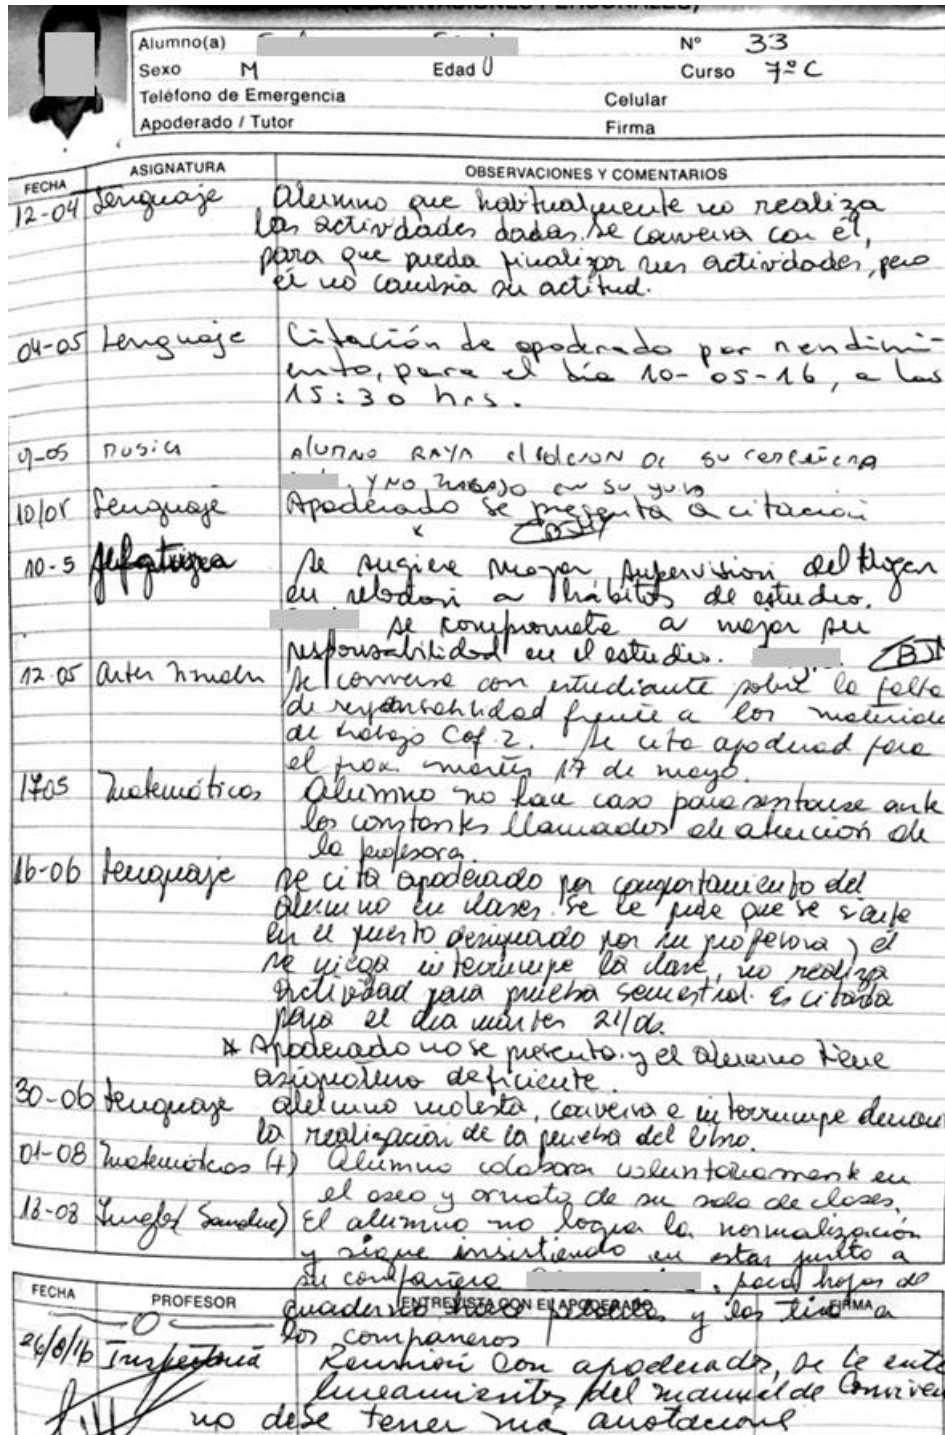 (OBSERVACIONES PERSONALES)
Alumno(a) Nº 33
Sexo M Edad Curso 7º C
Teléfono de Emergencia Celular
Apoderado / Tutor Firma
FECHA ASIGNATURA OBSERVACIONES Y COMENTARIOS
12-04 Lenguaje Alumno que habitualmente no realiza
las actividades dadas. Se conversa con él,
para que pueda finalizar sus actividades, pero
él no cambia su actitud.
04-05 Lenguaje Citación de apoderado por rendimi-
ento, para el día 10-05-16, a las
15:30 hrs.
9-05 Musica Alumno RAYA el de su compañera
Y NO TRABAJO en su
10/05 Lenguaje Apoderado se presenta a citación
10-5 Jefatura Se sugiere mayor supervisión del Hogar
en relación a hábitos de estudio.
se compromete a mejor su
responsabilidad en el estudio.
12-05 Artes Visuales Se conversa con estudiante sobre la falta
de responsabilidad frente a los materiale
de trabajo Cof. 2. Se cita apoderad para
el prox martes 17 de mayo.
1705 Matemáticas Alumno no hace caso para sentarse ante
los constantes llamados de atención de
la profesora.
16-06 Lenguaje Se cita apoderado por comportamiento del
alumno en clases. Se le pide que se siente
en el puesto designado por su profesora y él
se niega interrumpe la clase, no realiza
actividad para prueba semestral. Es citado
para el día martes 21/06.
* Apoderado no se presento y el alumno tiene
deficiente.
30-06 Lenguaje alumno molesta, conversa e interrumpe
la realización de la prueba del libro.
01-08 Matemáticas (+) Alumno colabora voluntariamente en
el aseo y ornato de su sala de clases.
18-08 Inglés El alumno no logra la normalización
y sigue insistiendo en estar junto a
su compañera , saca hojas de
FECHA PROFESOR ENTREVISTA CON EL APODERADO FIRMA
cuaderno hace pelotas y los tira a
los compañeros
26/8/16 Inspectoría Reunión con apoderado, se le
lineamientos del manual de
no debe tener más anotacione